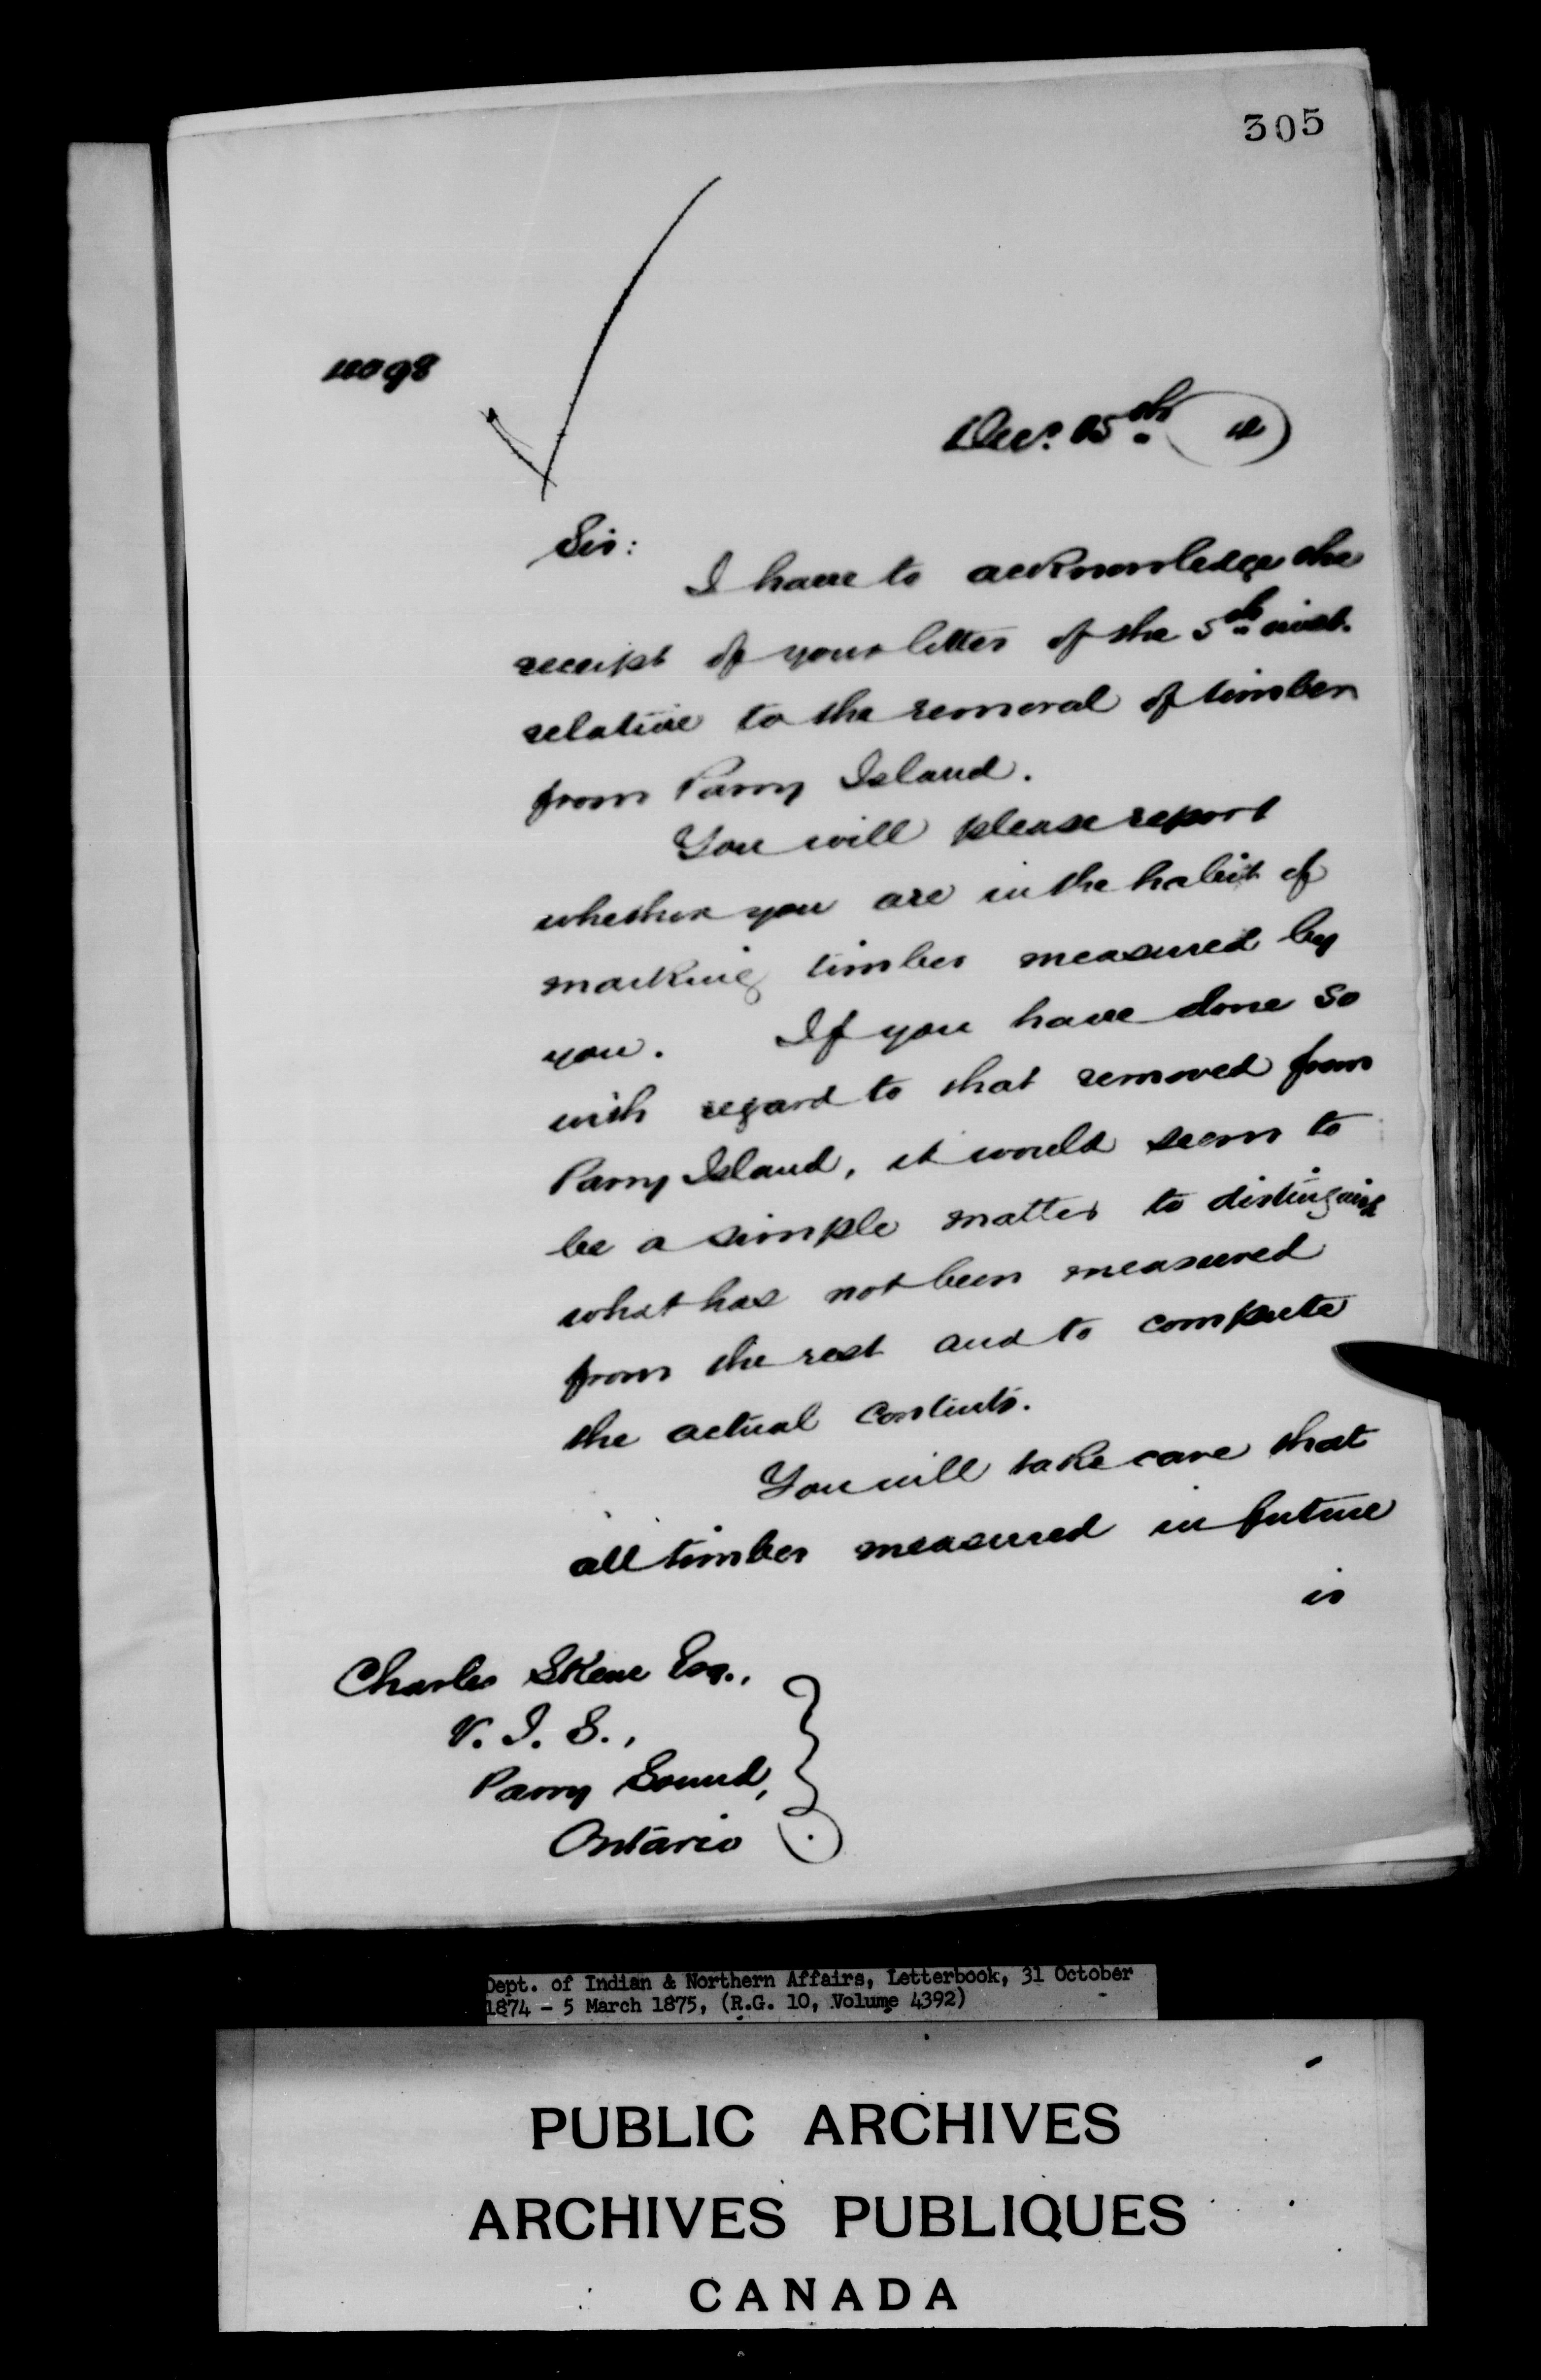 305
Decr. 15th
Sir:
I have to acknowledge the
receipt of your letter of the 5th inst.
relative to the removal of timber
from Parry Island.
You will please report
whether you are in the habit of
marking timber measured by
you. If you have done so
with regard to that removed from
Parry Island, it would seem to
be a simple matter to distinguish
what has not been measured
from the rest and to compute
the actual contents.
You will take care that
all timber measured in future
is
Charles Skene Esq.,
V. I. S.,
Parry Sound,
Ontario
Dept. of Indian & Northern Affairs, Letterbook, 31 October
1874 - 5 March 1875, (R.G. 10, Volume 4392)
PUBLIC ARCHIVES
ARCHIVES PUBLIQUES
CANADA